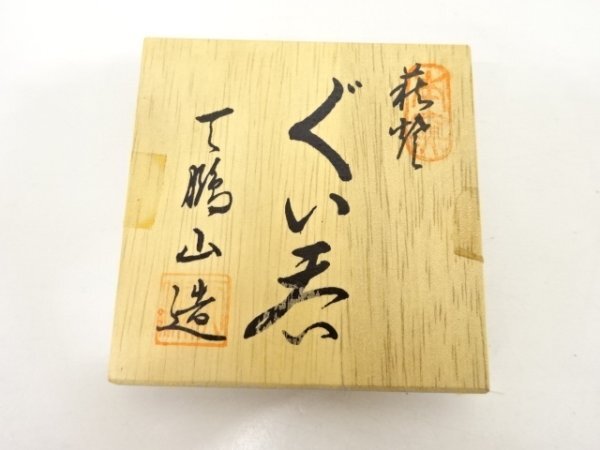 萩焼
ぐい呑
天鵬山造